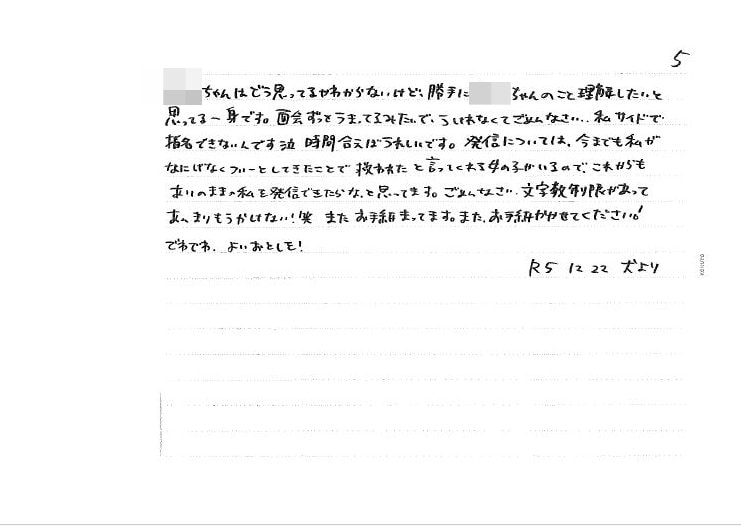 5
ちゃんはどう思ってるかわからないけど、勝手に ちゃんのこと理解したいと
思ってる一身です。面会ずっとうまってるみたいで、うけれなくてごめんなさい... 私サイドで
指名できないんです泣 時間合えばうれしいです。発信については、今までも私が
なにげなくツイートしてきたことで救われたと言ってくれる女の子がいるので、これからも
ありのままの私を発信できたらな、と思ってます。ごめんなさい、文字数制限があって
あんまりもうかけない!笑 また お手紙まってます。また、お手紙かかせてください!
でわでわ、よいおとしを!
R5 12 22 犬より
KOKUYO